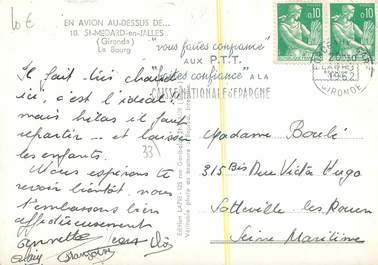 10 €
EN AVION AU-DESSUS DE...
10. St-MEDARD-en-JALLES
(Gironde)
Le Bourg
"vous faites confiance
AUX P.T.T.
faites confiance" A LA
CAISSE NATIONALE d'EPARGNE
0,10
0,10
1962
GIRONDE
Il fait très chaud
ici, c'est l'idéal
mais hélas il faut
repartir et laisser
les enfants.
Nous espérons te
revoir bientôt, nous
t'embrassons bien
affectueusement
33
Madame Boulé
315 Bis Rue Victor Hugo
Sotteville les Rouen
Seine Maritime